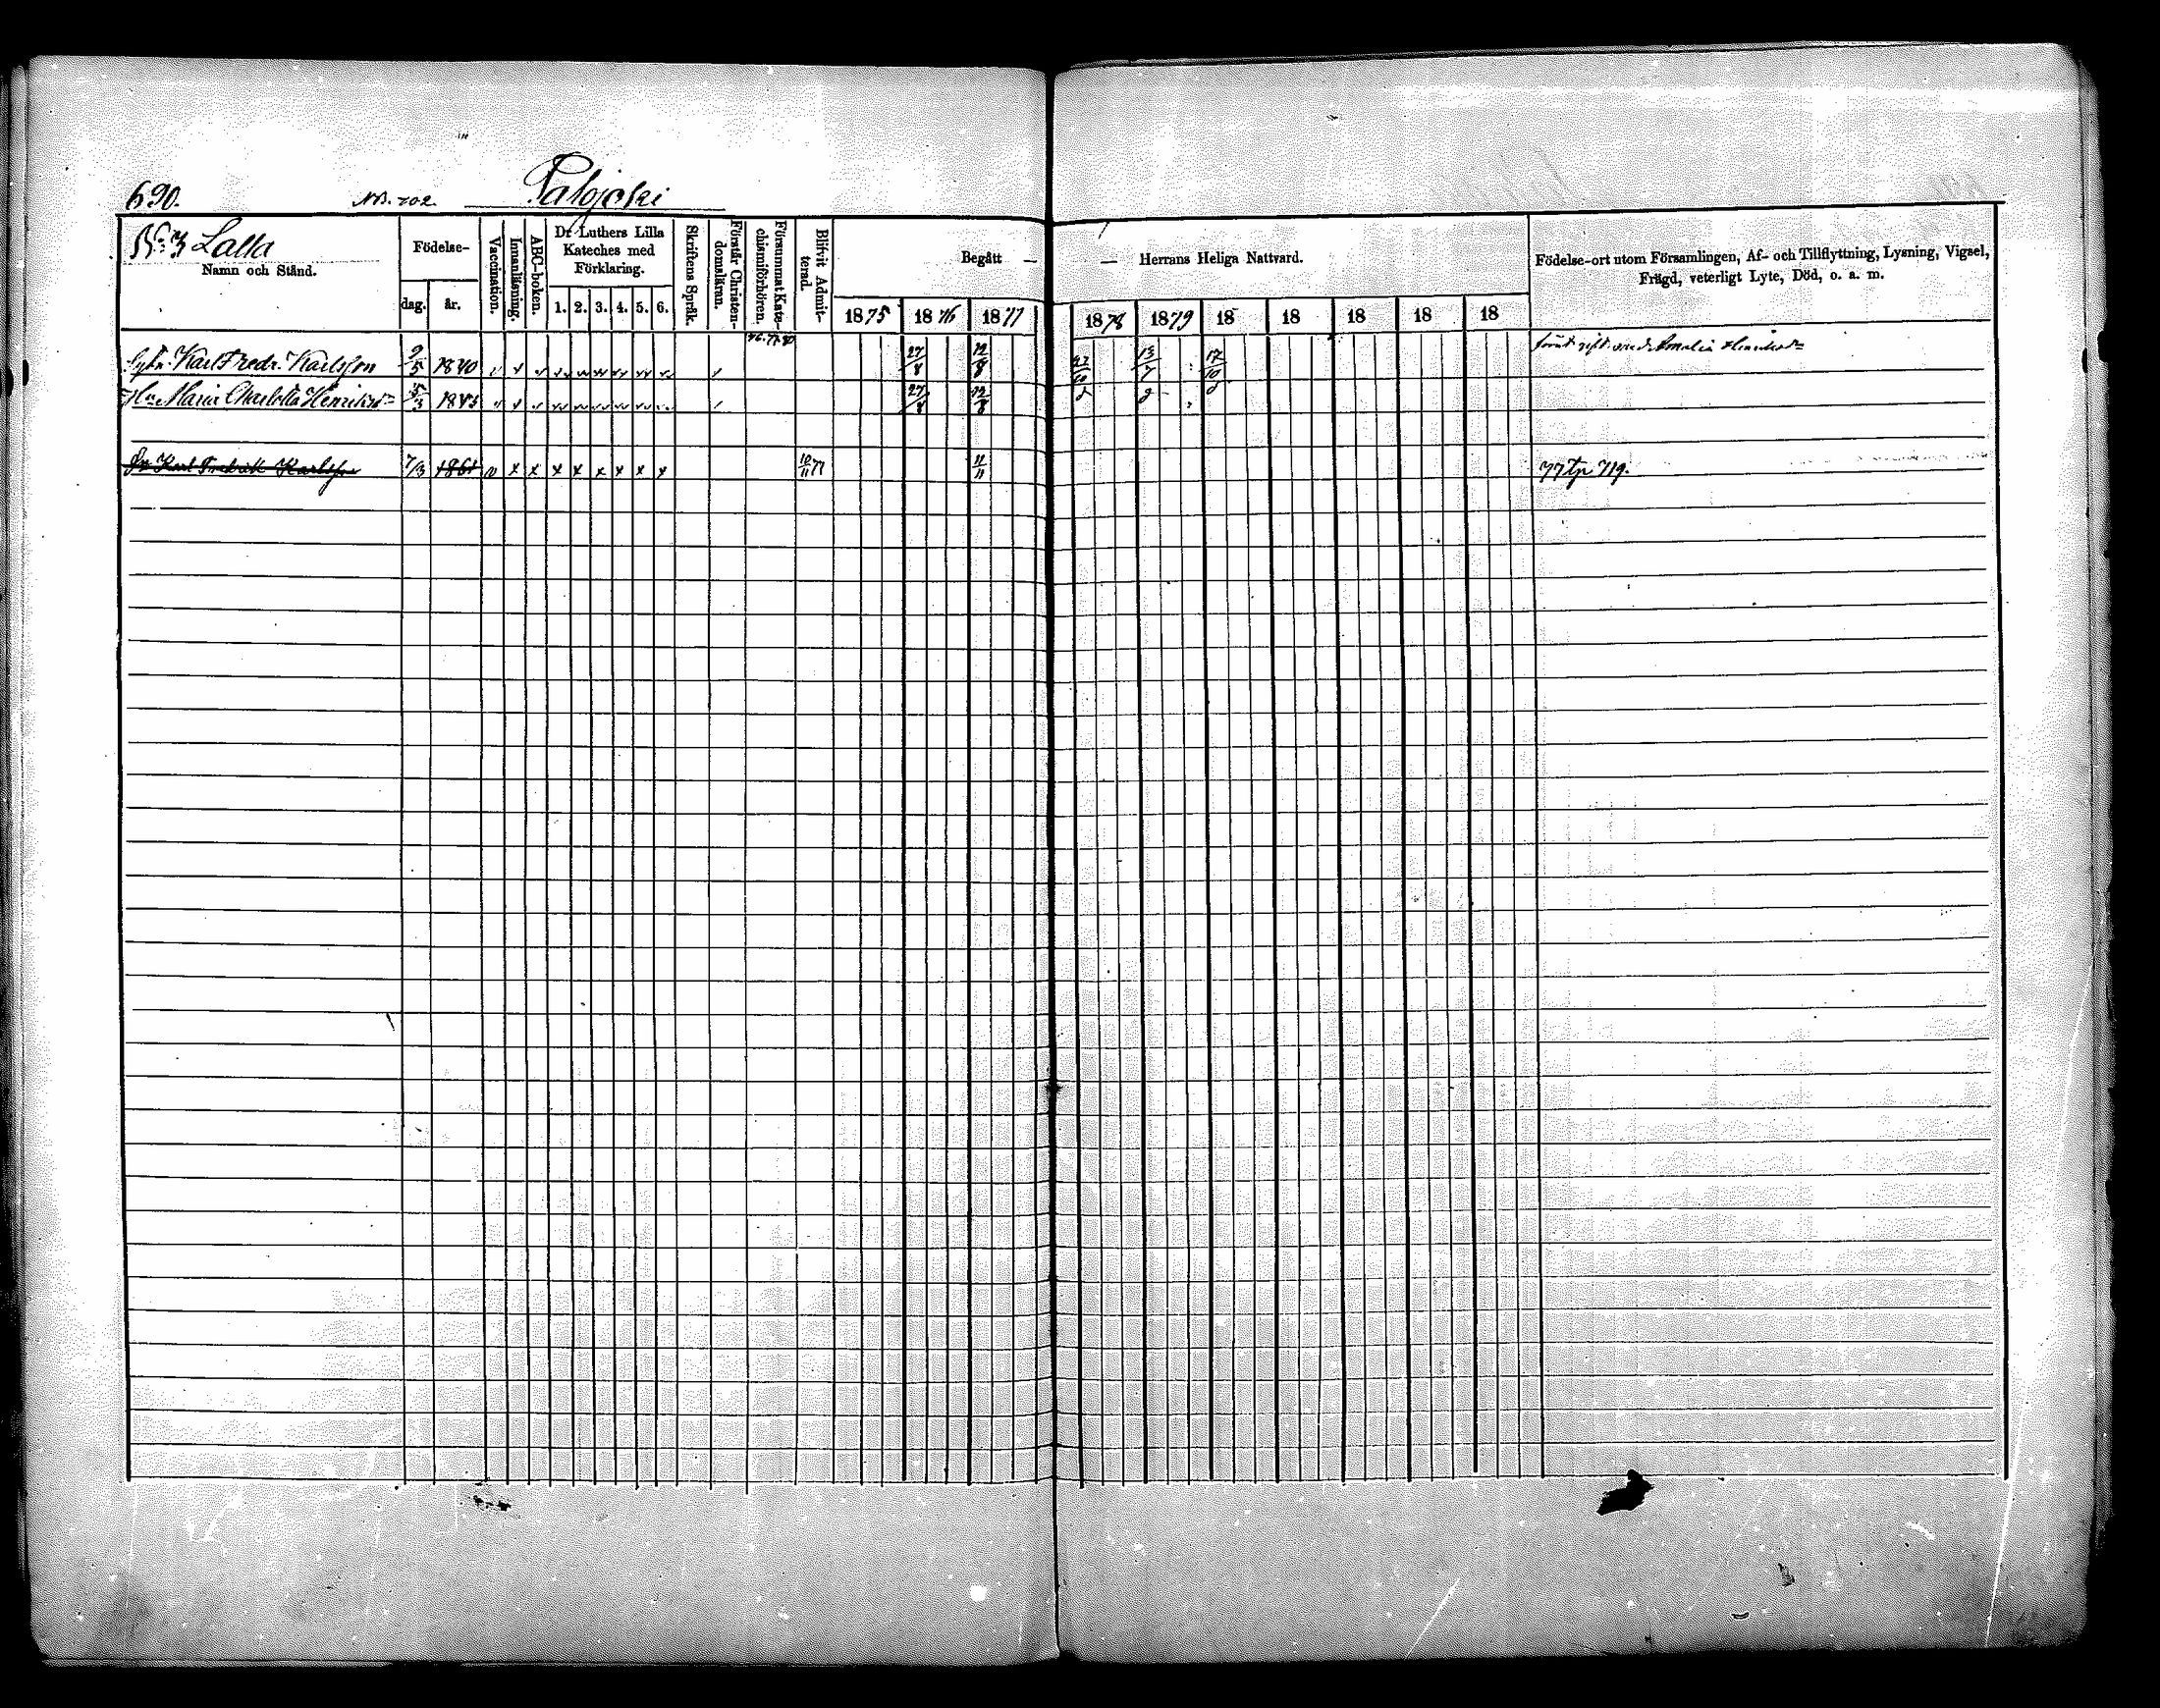 690. NB. 702. Palojoki
No 3 Lalla
Namn och Stånd.
Födelse-
dag. år.
Vaccination.
Innanläsning.
ABC-boken.
Dr Luthers Lilla Kateches med Förklaring.
1. 2. 3. 4. 5. 6.
Skriftens Språk.
Förstår Christendomsläran.
Försummat Katechismiförhören.
Blifvit Admitterad.
Begått — — Herrans Heliga Nattvard.
1875 1876 1877 1878 1879 18 18 18 18 18
Födelse-ort utom Församlingen, Af- och Tillflyttning, Lysning, Vigsel,
Frägd, veterligt Lyte, Död, o. a. m.
Karl Fredr. Karlsson 9/5 1840 27/8 12/8 13/7 17/10
Maria Charlotta Henriksd= 5/3 27/8 12/8
Karl Fredrik Karlsson 7/3 1861 10/11 77 11/11 77 tp 719.